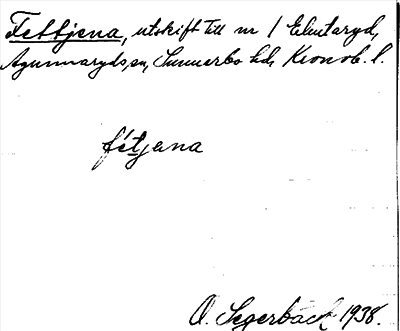 Fettjena, utskift till nr 1 Elmtaryd,
Agunnaryds sn, Sunnerbo hd, Kronob. l.
fétjana
O. Segerbäck 1938.